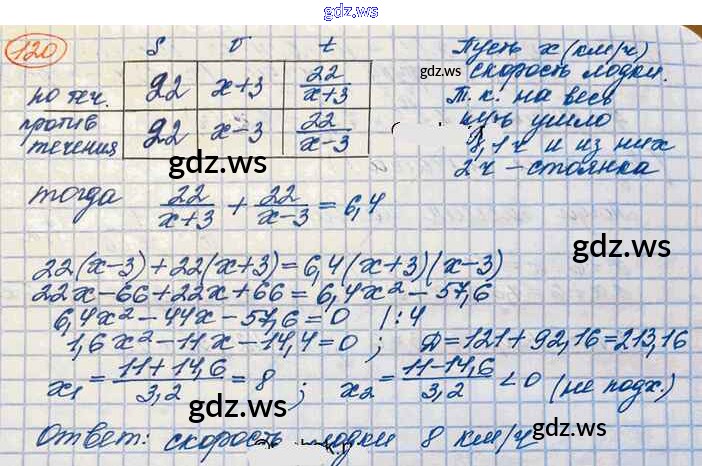 gdz.ws
120
S v t
по теч. 22 x+3 22/(x+3)
против течения 22 x-3 22/(x-3)
Пусть x (км/ч)
gdz.ws скорость лодки.
Т.к. на весь
путь ушло
ч и из них
2ч - стоянка
gdz.ws
тогда 22/(x+3) + 22/(x-3) = 6,4
gdz.ws
22(x-3)+22(x+3)=6,4(x+3)(x-3)
22x-66+22x+66=6,4x²-57,6
6,4x²-44x-57,6=0 |:4
1,6x²-11x-14,4=0; Д=121+92,16=213,16
x₁=(11+14,6)/3,2=8; x₂=(11-14,6)/3,2<0 (не подх.)
gdz.ws
gdz.ws
Ответ: скорость лодки 8 км/ч